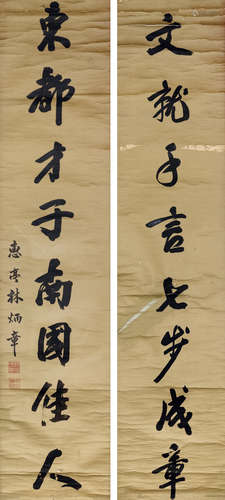 文就千言七步成章
東都才子南國佳人
惠亭林炳章